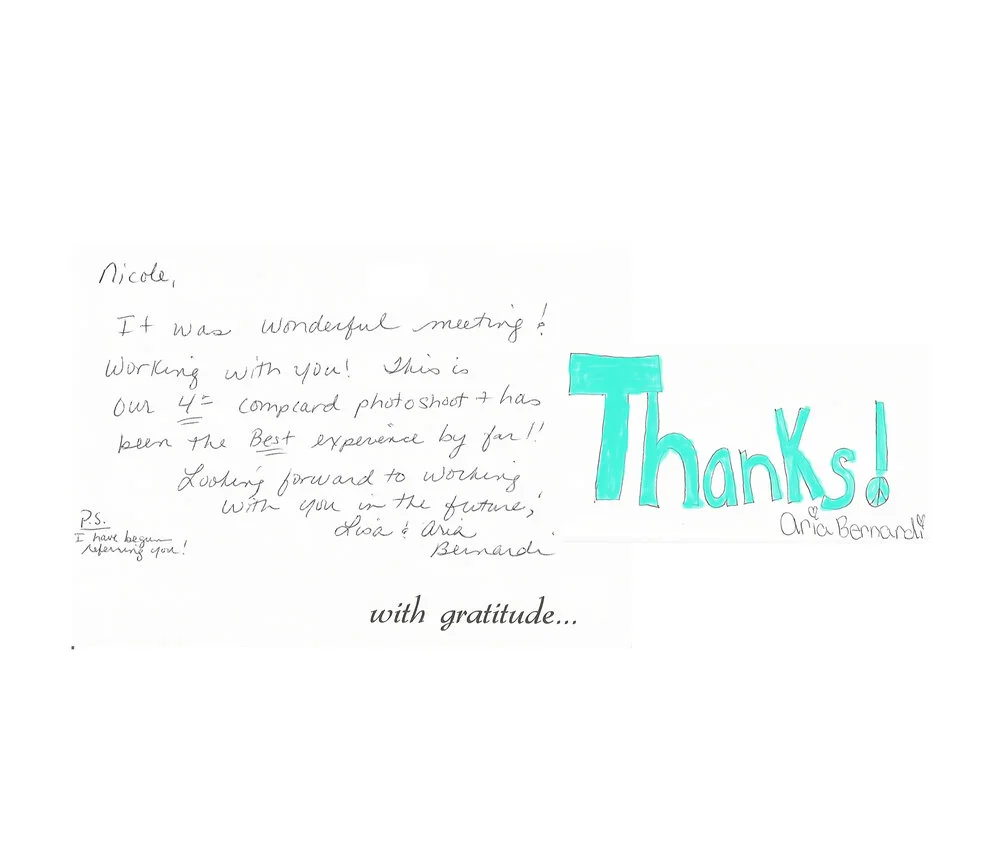 Nicole,
It was wonderful meeting &
working with you! This is
our 4th compcard photoshoot + has
been the Best experience by far!!
Looking forward to working
with you in the future,
Lisa & Aria
Bernardi
P.S.
I have begun
referring you!
with gratitude...
Thanks!
Aria Bernardi